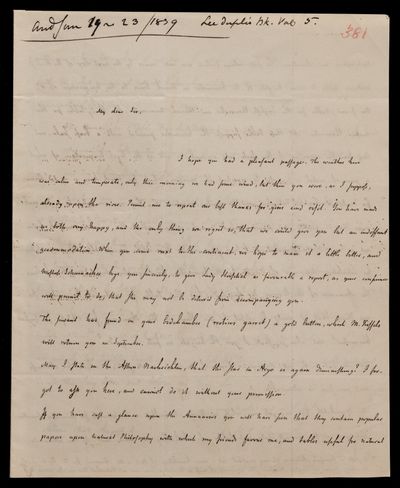 and Jan 19 & 23 / 1839 See Duplic Bk. Vol 5.
381
My dear Sir.
I hope you had a pleasant passage. The weather here
was calm and temperate, only this morning we had some wind, but then you were, as I suppose,
already upon the river. Permit me to repeat our best thanks for your kind visit. You have made
us both very happy, and the only thing we regret is, that we could give you but an indifferent
accommodation. When you come next to the continent, we hope to man it a little better, and
Schumacher begs you sincerely, to give Lady Herschel as favourable a report, as your conscience
will permit to do, that she may not be deterred from accompanying you.
The servant has found in your bedchamber (rectius garret) a gold button, which M. Repsold
will return you in September.
May I state in the Astron. Nachrichten, that the star in Argo is again diminishing? I for-
got to ask you here, and cannot do it without your permission
If you have cast a glance upon the Annuaires you will have seen that they contain popular
papers upon natural Philosophy with which my friends favour me, and tables useful for natural